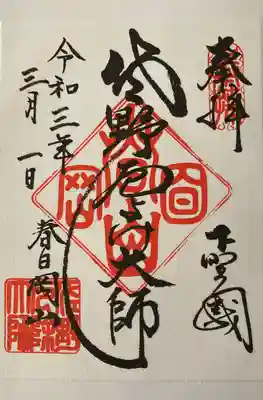 奉拝
下野國
佐野厄よけ大師
令和三年
三月一日
春日岡山